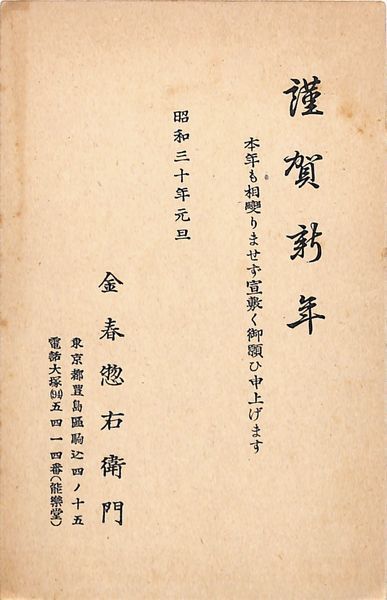 謹賀新年
本年も相變りませず宣敷く御願ひ申上げます
昭和三十年元旦
金春惣右衛門
東京都豊島區駒込四ノ十五
電話大塚(94)五四一四番(能樂堂)